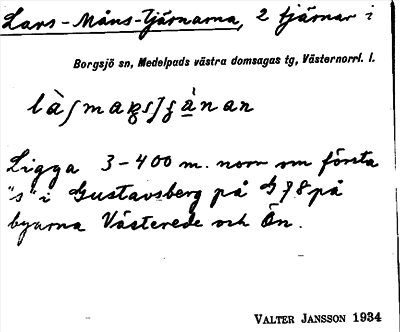 Lars-Måns-Tjärnarna, 2 tjärnar i
Borgsjö sn, Medelpads västra domsagas tg, Västernorrl. l.
Ligga 3-400 m. norr om första
"s" i Gustavsberg på G 78 på
byarna Västerede och Ön.
VALTER JANSSON 1934